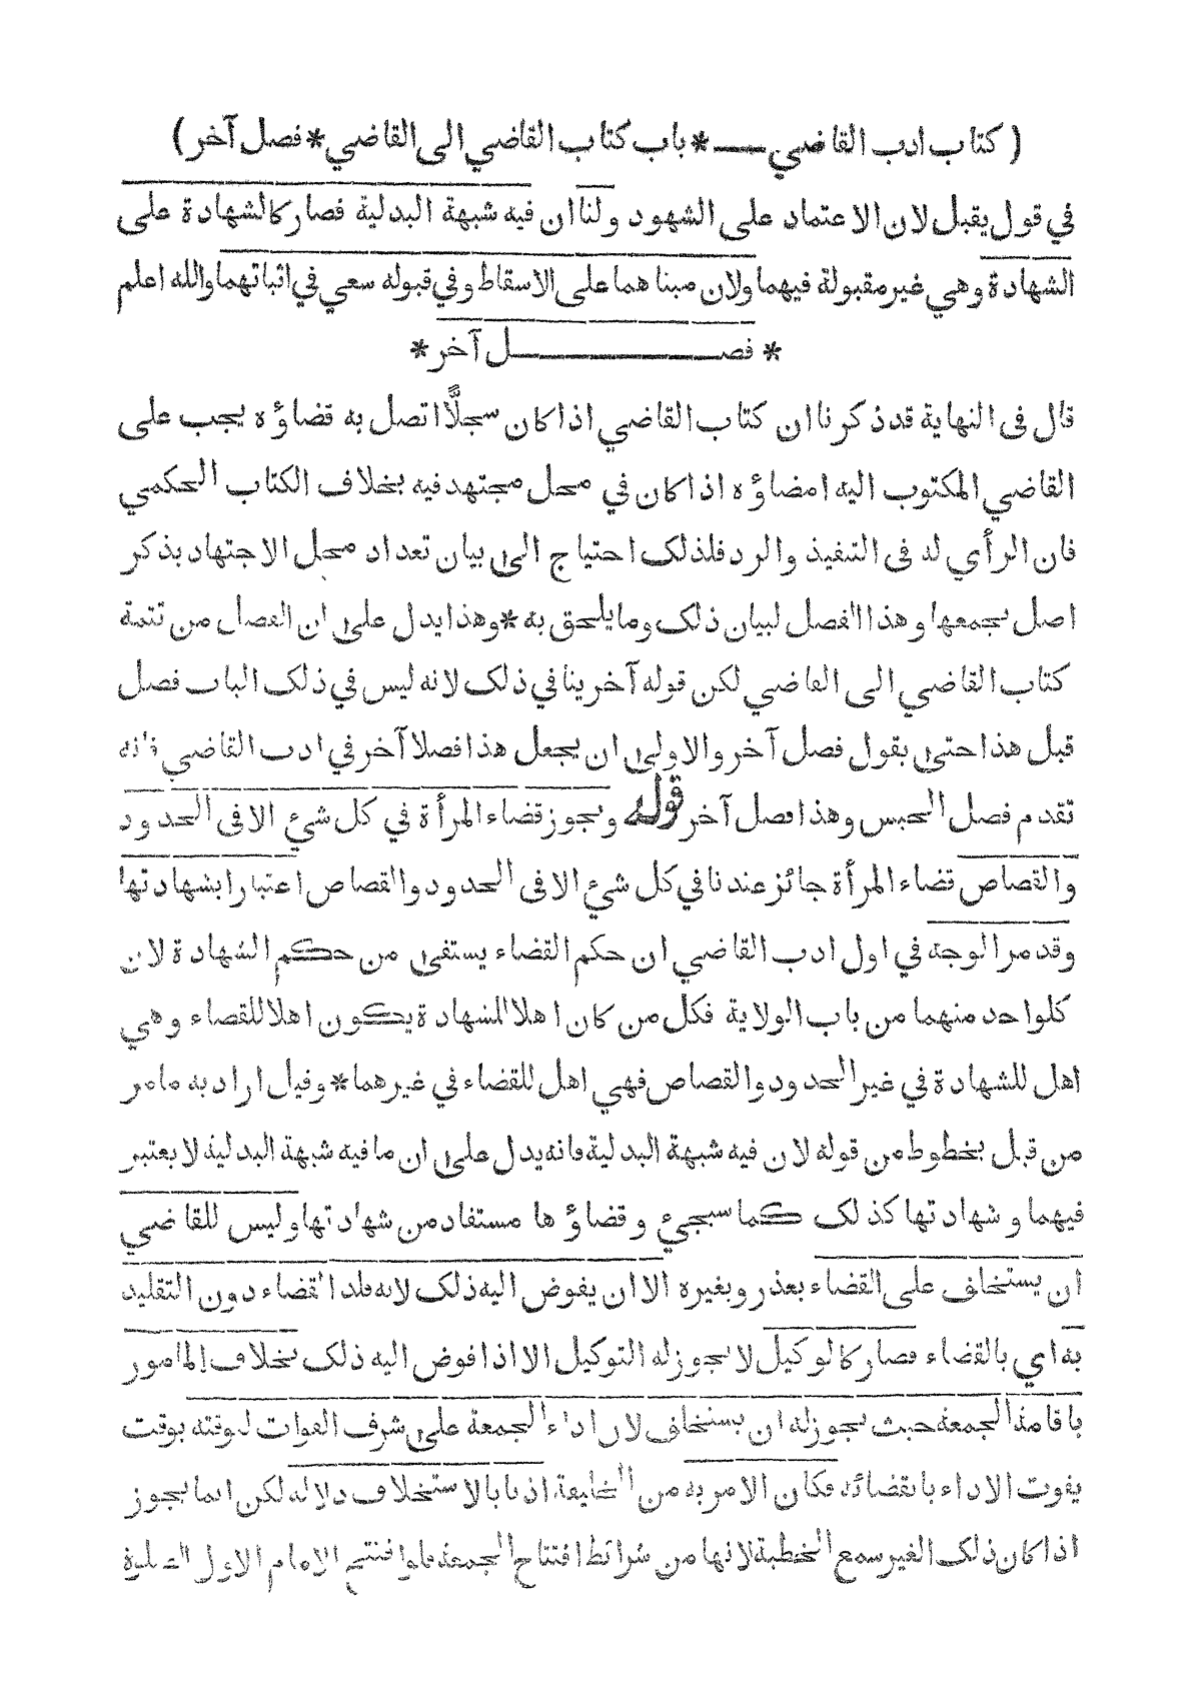 ( كتاب ادب القاضي — * باب كتاب القاضي الى القاضي * فصل آخر )
في قول يقبل لان الاعتماد على الشهود ولنا ان فيه شبهة البدلية فصار كالشهادة على
الشهادة وهي غير مقبولة فيهما ولان مبناهما على الاسقاط وفي قبوله سعي في اثباتهما والله اعلم
* فصل آخر *
قال فى النهاية قد ذكرنا ان كتاب القاضي اذا كان سجلًّا اتصل به قضاؤه يجب على
القاضي المكتوب اليه امضاؤه اذا كان في محل مجتهد فيه بخلاف الكتاب الحكمي
فان الرأي له فى التنفيذ والرد فلذلك احتياج الى بيان تعداد محل الاجتهاد بذكر
اصل يجمعها وهذا الفصل لبيان ذلك وما يلحق به * وهذا يدل على ان الفصل من تتمة
كتاب القاضي الى القاضي لكن قوله آخر ينافي ذلك لانه ليس في ذلك الباب فصل
قبل هذا حتى يقول فصل آخر والاولى ان يجعل هذا فصلا آخر في ادب القاضي فانه
تقدم فصل الحبس وهذا فصل آخر قوله ويجوز قضاء المرأة في كل شيء الا فى الحدود
والقصاص قضاء المرأة جائز عندنا في كل شيء الا فى الحدود والقصاص اعتبارا بشهادتها
وقد مر الوجه في اول ادب القاضي ان حكم القضاء يستقى من حكم الشهادة لان
كلواحد منهما من باب الولاية فكل من كان اهلا للشهادة يكون اهلا للقضاء وهي
اهل للشهادة في غير الحدود والقصاص فهي اهل للقضاء في غيرهما * وقيل اراد به ما مر
من قبل بخطوط من قوله لان فيه شبهة البدلية فانه يدل على ان ما فيه شبهة البدلية لا يعتبر
فيهما وشهادتها كذلك كما سيجيء وقضاؤها مستفاد من شهادتها وليس للقاضي
ان يستخلف على القضاء بعذر وبغيره الا ان يفوض اليه ذلك لانه قلد القضاء دون التقليد
به اي بالقضاء فصار كالوكيل لا يجوز له التوكيل الا اذا فوض اليه ذلك بخلاف المامور
باقامة الجمعة حيث يجوز له ان يستخلف لان اداء الجمعة على شرف الفوات لتوقته بوقت
يفوت الاداء بانقضائه فكان الامر به من الخليفة اذنا بالاستخلاف دلالة لكن انما يجوز
اذا كان ذلك الغير سمع الخطبة لانها من شرائط افتتاح الجمعة فلو افتتح الامام الاول الصلوة